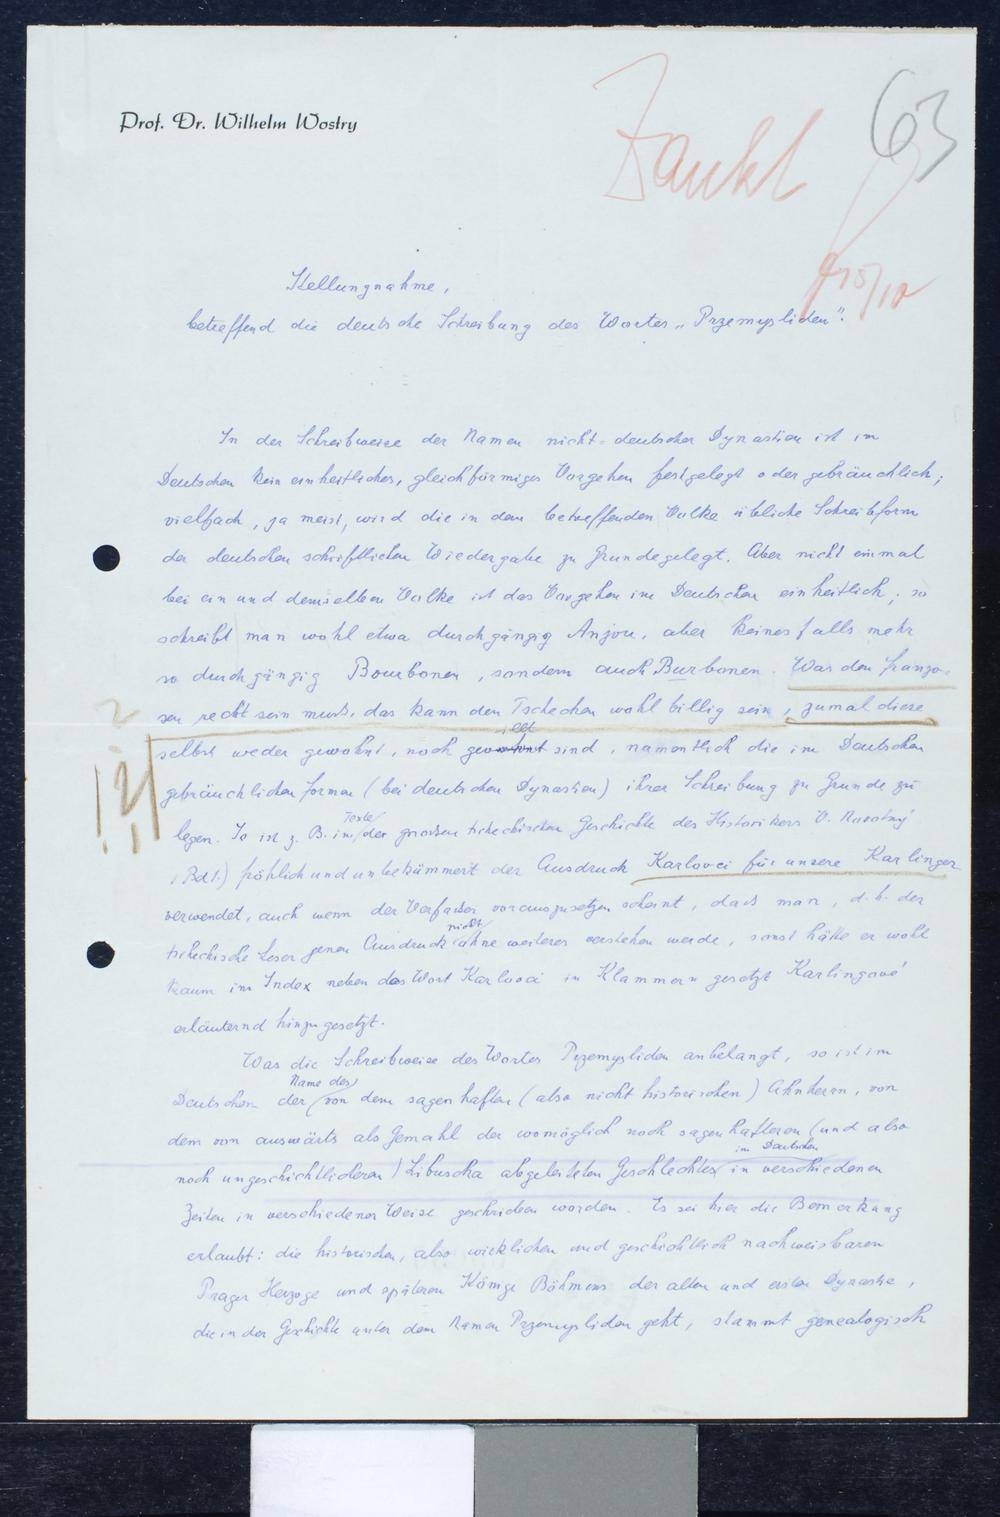 Prof. Dr. Wilhelm Wostry
63
Zankl
15/10
Stellungnahme,
betreffend die deutsche Schreibung des Wortes „Przemysliden".
In der Schreibweise der Namen nicht-deutscher Dynastien ist im
Deutschen kein einheitliches, gleichförmiges Vorgehen festgelegt oder gebräuchlich;
vielfach, ja meist, wird die in dem betreffenden Volke übliche Schreibform
der deutschen schriftlichen Wiedergabe zu Grunde gelegt. Aber nicht einmal
bei ein und demselben Volke ist das Vorgehen im Deutschen einheitlich; so
schreibt man wohl etwa durchgängig Anjou, aber keinesfalls mehr
so durchgängig Bourbonen, sondern auch Burbonen. Was den Franzo-
sen recht sein muss, das kann den Tschechen wohl billig sein, zumal diese
selbst weder gewohnt, noch gewillt sind, namentlich die im Deutschen
gebräuchlichen Formen (bei deutschen Dynastien) ihrer Schreibung zu Grunde zu
legen. So ist z. B. im Texte der grossen tschechischen Geschichte des Historikers V. Novotný
(Bd 1.) fröhlich und unbekümmert der Ausdruck Karlovci für unsere Karlinger
verwendet, auch wenn der Verfasser vorauszusetzen scheint, dass man, d. h. der
tschechische Leser jenen Ausdruck nicht ohne weiteres verstehen werde, sonst hätte er wohl
kaum im Index neben das Wort Karlovci in Klammern gesetzt Karlingové
erläuternd hinzugesetzt.
Was die Schreibweise des Wortes Przemysliden anbelangt, so ist im
Deutschen der Name des von dem sagenhaften (also nicht historischen) Ahnherrn, von
dem von auswärts als Gemahl der womöglich noch sagenhafteren (und also
noch ungeschichtlicheren) Libuscha abgeleiteten Geschlechtes im Deutschen in verschiedenen
Zeiten in verschiedener Weise geschrieben worden. Es sei hier die Bemerkung
erlaubt: die historischen, also wirklichen und geschichtlich nachweisbaren
Prager Herzoge und späteren Könige Böhmens der alten und ersten Dynastie,
die in der Geschichte unter dem Namen Przemysliden geht, stammt genealogisch